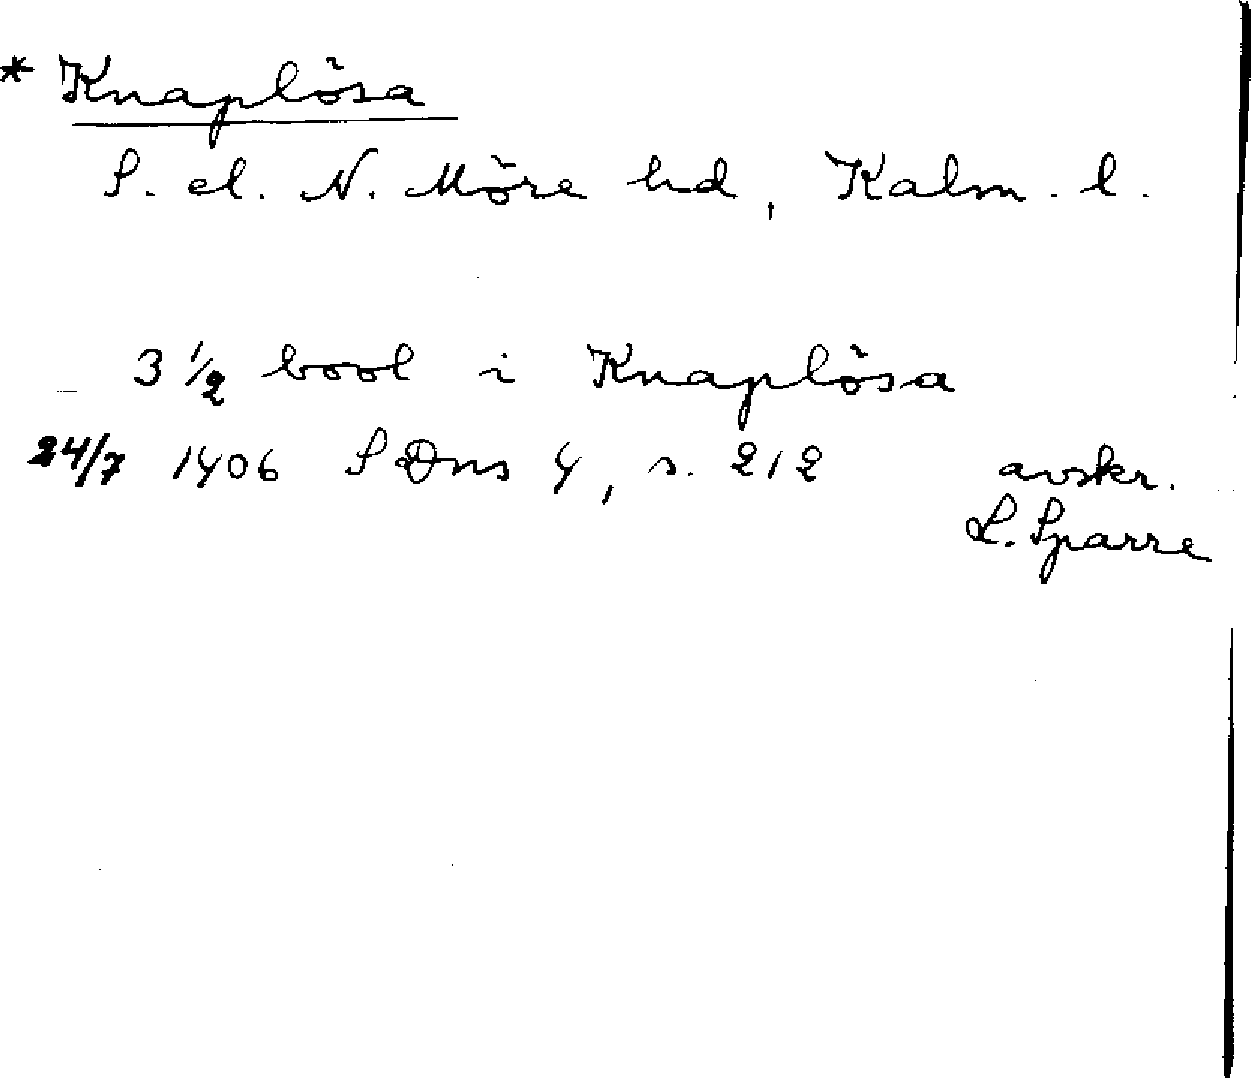 * Knaplösa
S. el. N. Möre hd, Kalm. l.
3 1/2 bool i Knaplösa
24/7 1406 SDns 4, s. 212 avskr.
L. Sparre